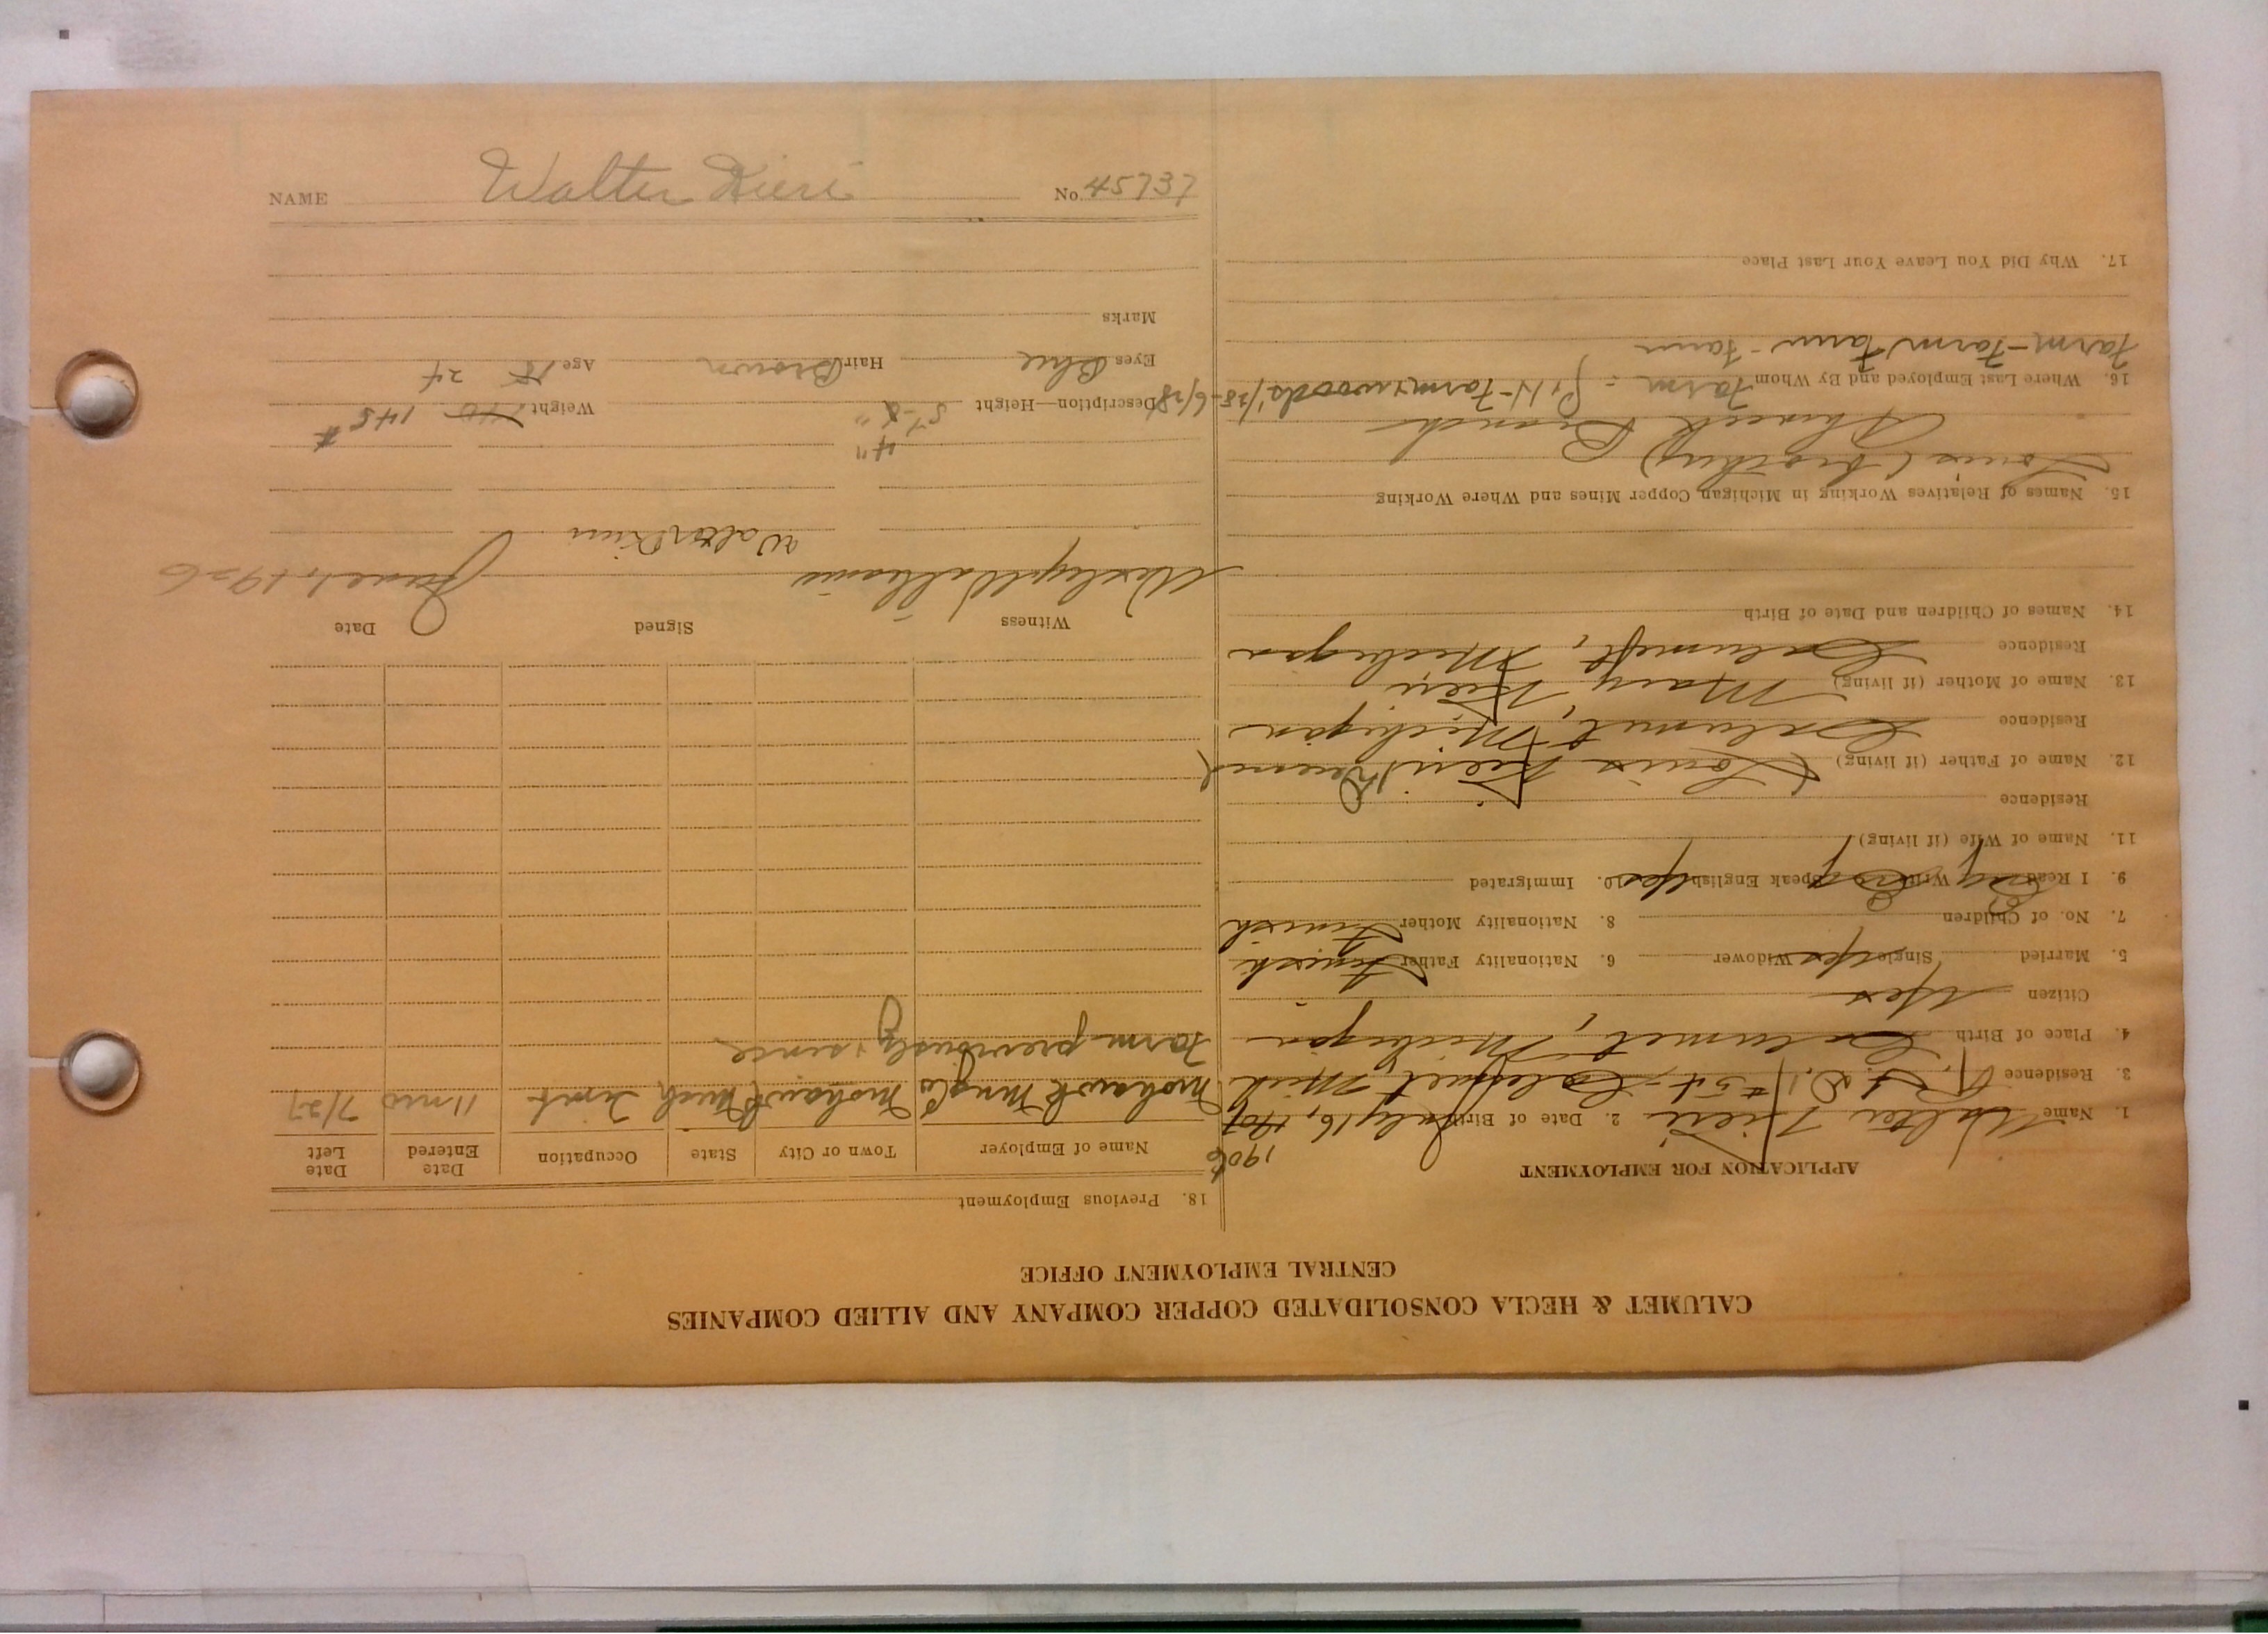 CALUMET & HECLA CONSOLIDATED COPPER COMPANY AND ALLIED COMPANIES
CENTRAL EMPLOYMENT OFFICE
APPLICATION FOR EMPLOYMENT
1906
1. Name Walter Kieri 2. Date of Birth July 16, 1907
3. Residence R.F.D. 1, #54, Calumet, Mich
4. Place of Birth Calumet, Michigan
Citizen Yes
5. Married Single yes Widower 6. Nationality Father Finnish
7. No. of Children 8. Nationality Mother Finnish
9. I Read Eng Write Eng Speak English yes 10. Immigrated
11. Name of Wife (if living)
Residence
12. Name of Father (if living) (Louis Kieri Deceased)
Residence Calumet, Michigan
13. Name of Mother (if living) Mary Kieri
Residence Calumet, Michigan
14. Names of Children and Date of Birth
15. Names of Relatives Working in Michigan Copper Mines and Where Working
Louis (brother)
Ahmeek Branch
16. Where Last Employed and By Whom Farm - Farm & woods 1/28-6/28
Farm-Farm Farm-Farm
17. Why Did You Leave Your Last Place
18. Previous Employment
Name of Employer Town or City State Occupation Date Entered Date Left
Mohawk Mng Co Mohawk Mich Timb. 11 mos 7/27
Farm previously & since
Witness Signed Date
June 1, 1926
Walter Kieri
4"
Description—Height 5'-8" Weight 140 145#
Eyes Blue Hair Brown Age 18 24
Marks
NAME Walter Kieri No. 45737